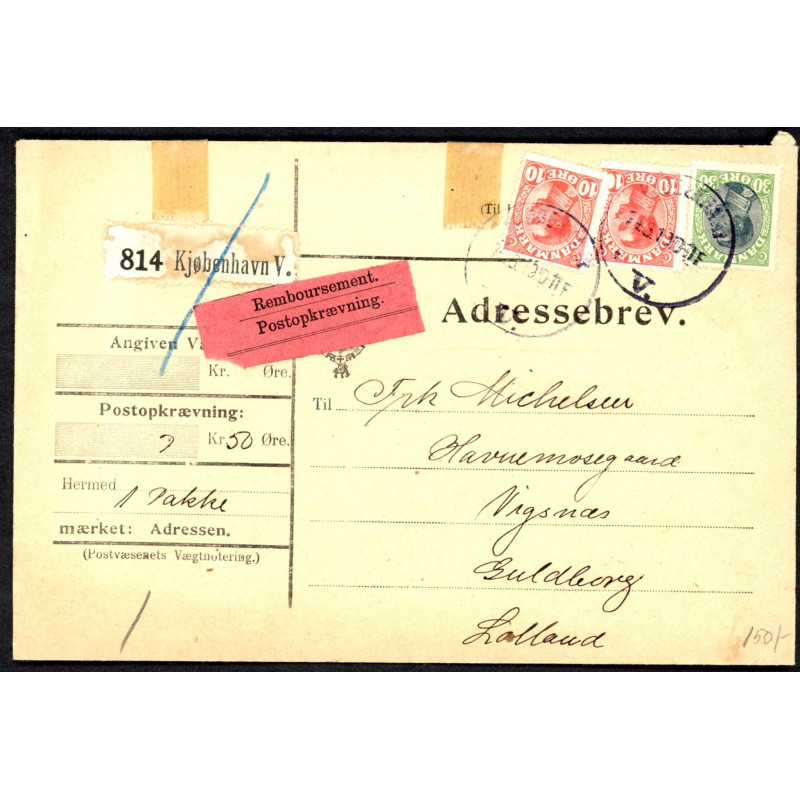 (Til
10 ØRE 10
DANMARK
10 ØRE 10
DANMARK
30 ØRE 30
DANMARK
814 Kjøbenhavn V.
Remboursement.
Postopkrævning.
Adressebrev.
Angiven Væ
Kr. Øre.
Postopkrævning:
Kr. 50 Øre.
Hermed
1 Pakke
mærket: Adressen.
(Postvæsenets Vægtnotering.)
Til Frk Michelsen
Havnemosegaard
Vigsnæs
Guldborg
Lolland
150/-